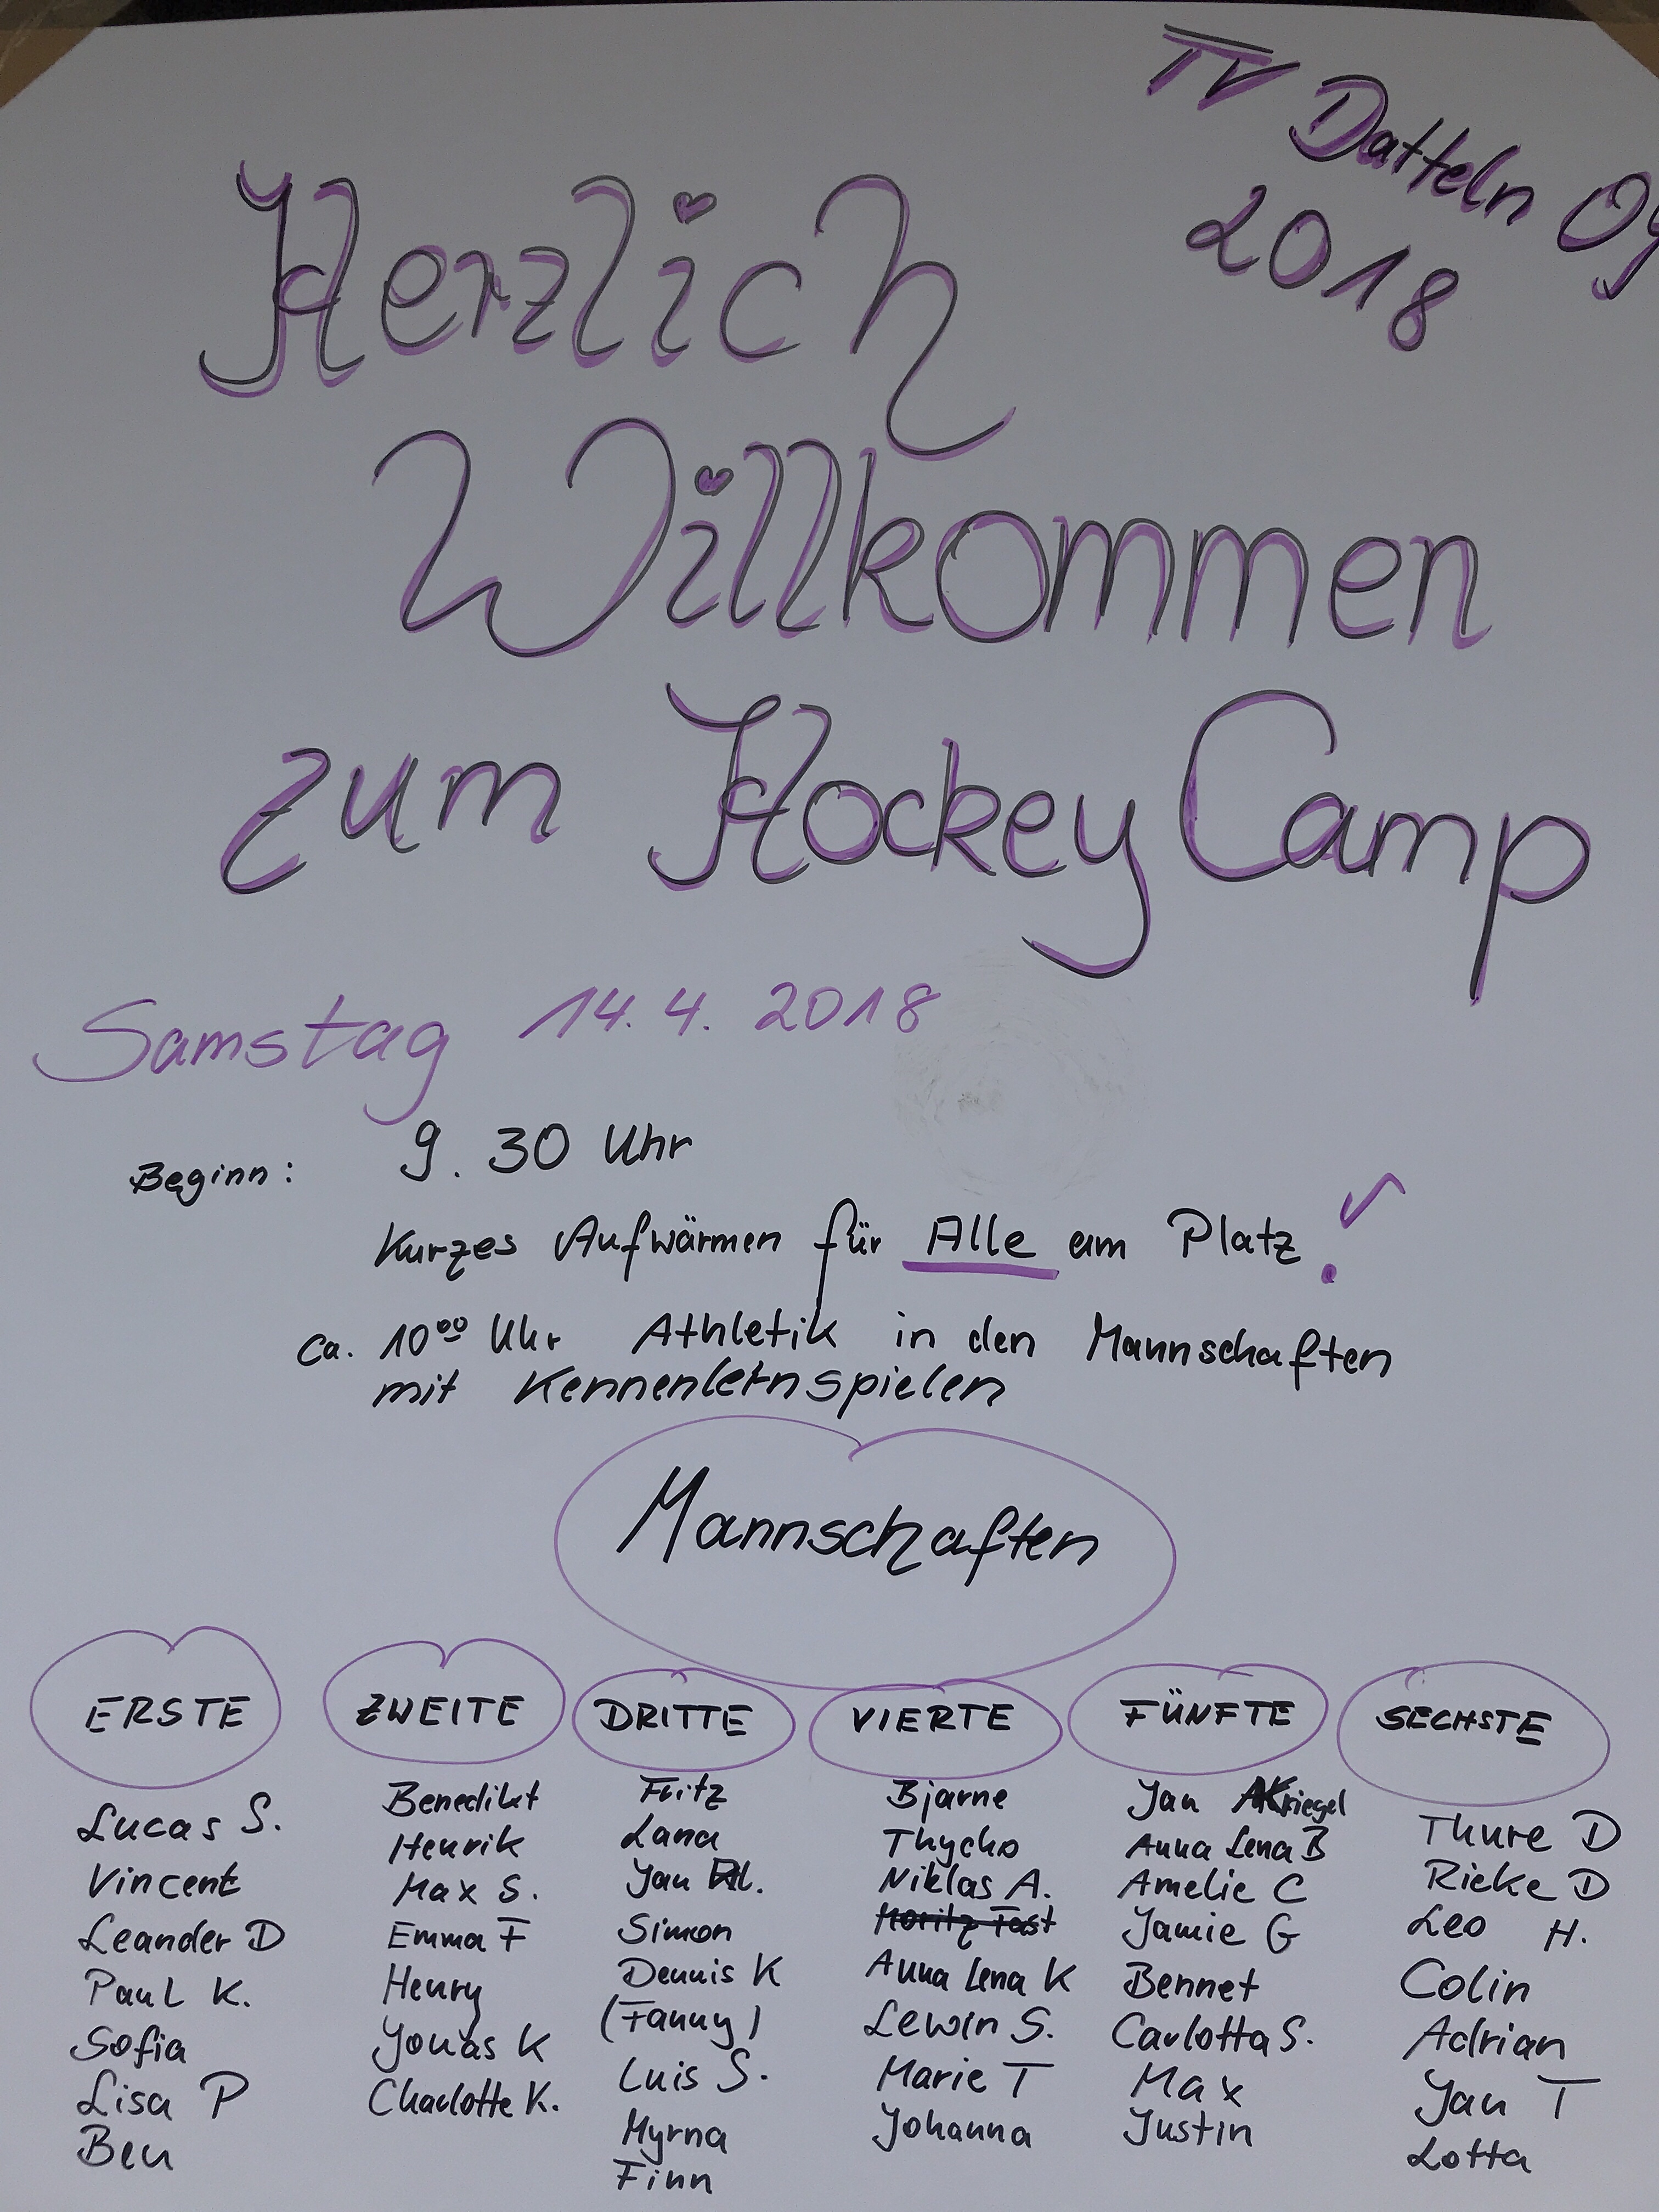 TV Datteln 09
2018
Herzlich
Willkommen
zum Hockey Camp
Samstag 14.4.2018
Beginn: 9.30 Uhr
Kurzes Aufwärmen für Alle am Platz!
ca. 10⁰⁰ Uhr Athletik in den Mannschaften
mit Kennenlernspielen
Mannschaften
ERSTE
Lucas S.
Vincent
Leander D
Paul K.
Sofia
Lisa P
Ben
ZWEITE
Benedikt
Henrik
Max S.
Emma F
Henry
Jonas K
Charlotte K.
DRITTE
Fritz
Lana
Jan
Simon
Dennis K
(Fanny)
Luis S.
Myrna
Finn
VIERTE
Bjarne
Thycho
Niklas A.
Moritz Fast
Anna Lena K
Lewin S.
Marie T
Johanna
FÜNFTE
Jan Kriegel
Anna Lena B
Amelie C
Jamie G
Bennet
Carlotta S.
Max
Justin
SECHSTE
Thure D
Rieke D
Leo H.
Colin
Adrian
Jan T
Lotta